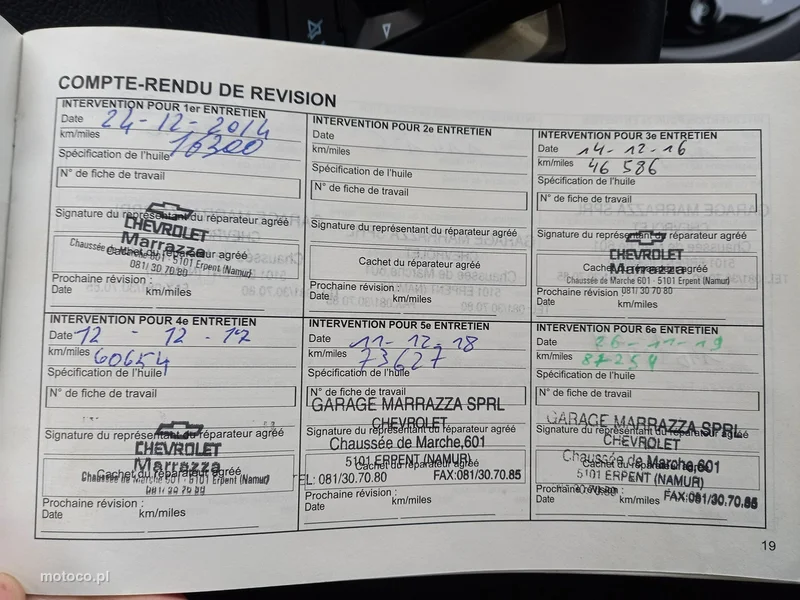 COMPTE-RENDU DE REVISION
INTERVENTION POUR 1er ENTRETIEN
Date 24-12-2014
km/miles 16300
Spécification de l'huile
N° de fiche de travail
Signature du représentant du réparateur agréé
CHEVROLET
Marrazza
Cachet du réparateur agréé
Chaussée de Marche 601 - 5101 Erpent (Namur)
081/ 30 70 80
Prochaine révision :
Date km/miles
INTERVENTION POUR 2e ENTRETIEN
Date
km/miles
Spécification de l'huile
N° de fiche de travail
Signature du représentant du réparateur agréé
Cachet du réparateur agréé
Prochaine révision :
Date km/miles
INTERVENTION POUR 3e ENTRETIEN
Date 14-12-16
km/miles 46 586
Spécification de l'huile
N° de fiche de travail
Signature du représentant du réparateur agréé
CHEVROLET
Marrazza
Cachet du réparateur agréé
Chaussée de Marche 601 - 5101 Erpent (Namur)
081/ 30 70 80
Prochaine révision
Date km/miles
INTERVENTION POUR 4e ENTRETIEN
Date 12 - 12 - 17
km/miles 60654
Spécification de l'huile
N° de fiche de travail
Signature du représentant du réparateur agréé
CHEVROLET
Marrazza
Cachet du réparateur agréé
Chaussée de Marche 601 - 5101 Erpent (Namur)
081/ 30 70 80
Prochaine révision :
Date km/miles
INTERVENTION POUR 5e ENTRETIEN
Date 11-12-18
km/miles 73627
Spécification de l'huile
N° de fiche de travail
GARAGE MARRAZZA SPRL
CHEVROLET
Signature du représentant du réparateur agréé
Chaussée de Marche,601
5101 ERPENT (NAMUR)
Cachet du réparateur agréé
TEL: 081/30.70.80 FAX:081/30.70.85
Prochaine révision :
Date km/miles
INTERVENTION POUR 6e ENTRETIEN
Date 26-11-19
km/miles 87254
Spécification de l'huile
N° de fiche de travail
GARAGE MARRAZZA SPRL
Signature du représentant du réparateur agréé
CHEVROLET
Chaussée de Marche 601
Cachet du réparateur agréé
5101 ERPENT (NAMUR)
30.70.80 FAX:081/30.70.85
Prochaine révision :
Date km/miles
19
motoco.pl